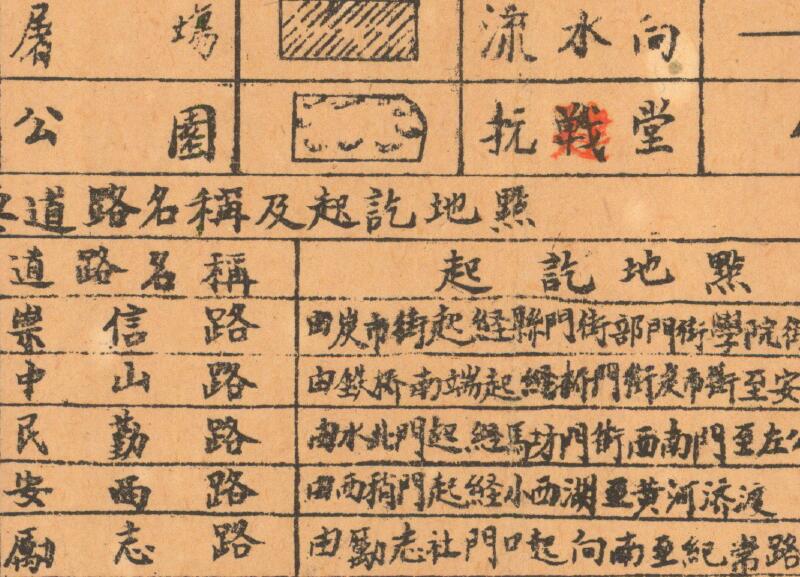 屠場 流水向
公園 抗戰堂
道路名稱及起訖地點
道路名稱 起訖地點
崇信路 由炭市街起經縣門街部門街學院街
中山路 由鉄桥南端起經桥門街炭市街至安
民勤路 由水北門起經馬坊門街西南門至左公
安西路 由西稍門起經小西湖至黃河济渡
勵志路 由勵志社門口起向南至紀常路